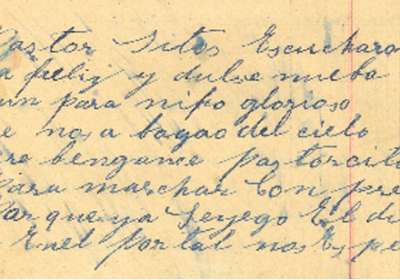 Pastor Sites Escuchara
a feliz y dulse nueba
un para niño glorioso
e nos a bagao del cielo
re bengance pastorcito
Para marchar Con pre
Porque ya Seyego El di
Enel portal nos Espe